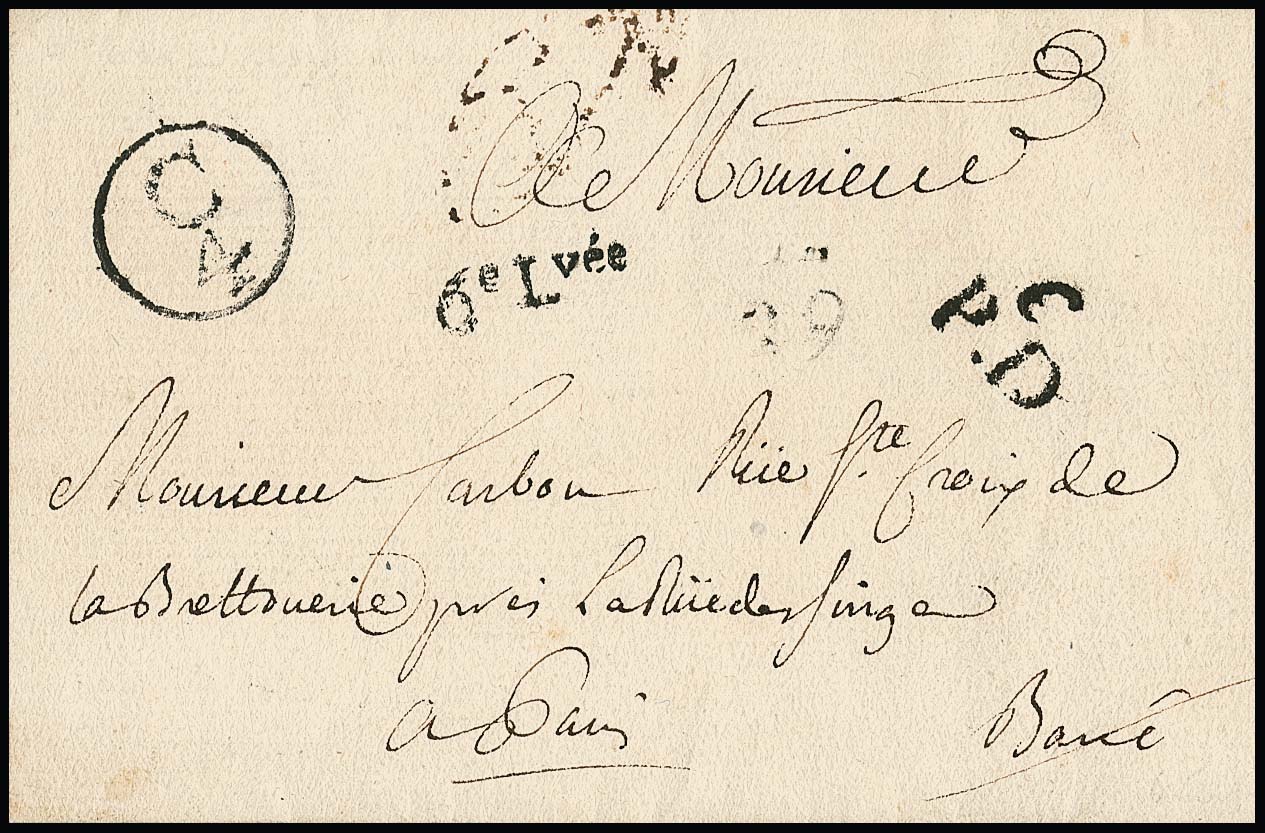 A Monsieur
C
4e
6e Lvée
29
C.D
P.
Monsieur Carbon Rüe Ste Croix de
la Brettonerie près La Rüe des singe
a Paris
Barré